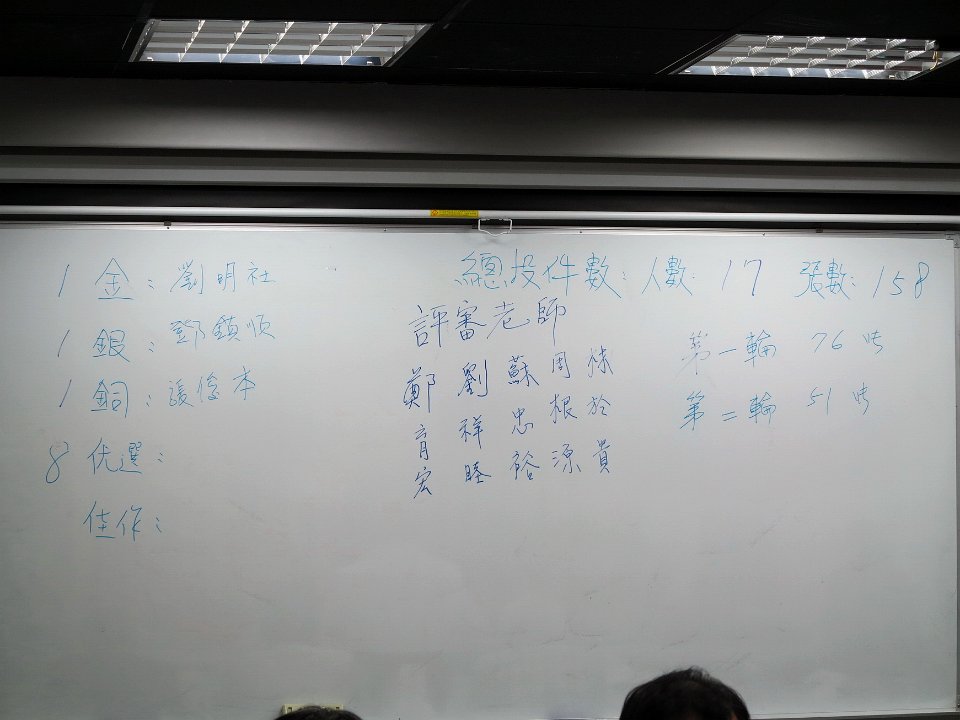 1 金：劉明社
1 銀：鄧鎮順
1 銅：張俊本
8 优選：
佳作：
總投件數：人數：17 張數：158
評審老師
鄭育宏
劉祥睦
蘇忠裕
周根源
林於貴
第一輪 76
第二輪 51